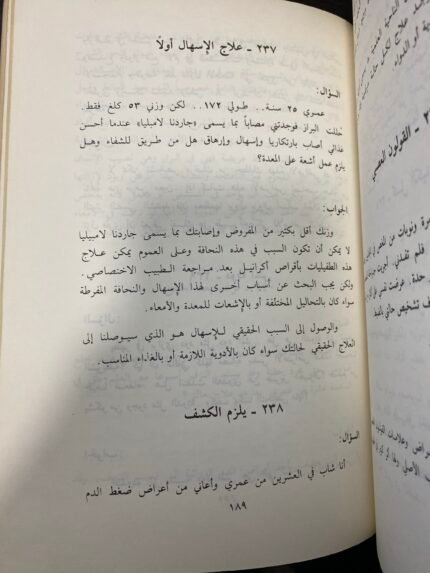 ٢٣٧ - علاج الإسهال أولاً
السؤال:
عمري ٢٥ سنة.. طولي ١٧٢.. لكن وزني ٥٣ كلغ فقط.
حللت البراز فوجدتني مصاباً بما يسمى «جاردنا لامبليا» عندما أحسن
غذائي أصاب بارتكاريا وإسهال وإرهاق هل من طريق للشفاء وهل
يلزم عمل أشعة على المعدة؟
الجواب:
وزنك أقل بكثير من المفروض وإصابتك بما يسمى جاردنا لامبيليا
لا يمكن أن تكون السبب في هذه النحافة وعلى العموم يمكن علاج
هذه الطفيليات بأقراص أكرانيل بعد مراجعة الطبيب الاختصاصي.
ولكن يجب البحث عن أسباب أخرى لهذا الإسهال والنحافة المفرطة
سواء كان بالتحاليل المختلفة أو بالإشعات للمعدة والأمعاء.
والوصول إلى السبب الحقيقي للإسهال هو الذي سيوصلنا إلى
العلاج الحقيقي لحالتك سواء كان بالأدوية اللازمة أو بالغذاء المناسب.
٢٣٨ - يلزم الكشف
السؤال:
أنا شاب في العشرين من عمري وأعاني من أعراض ضغط الدم
١٨٩
القولون العصبي